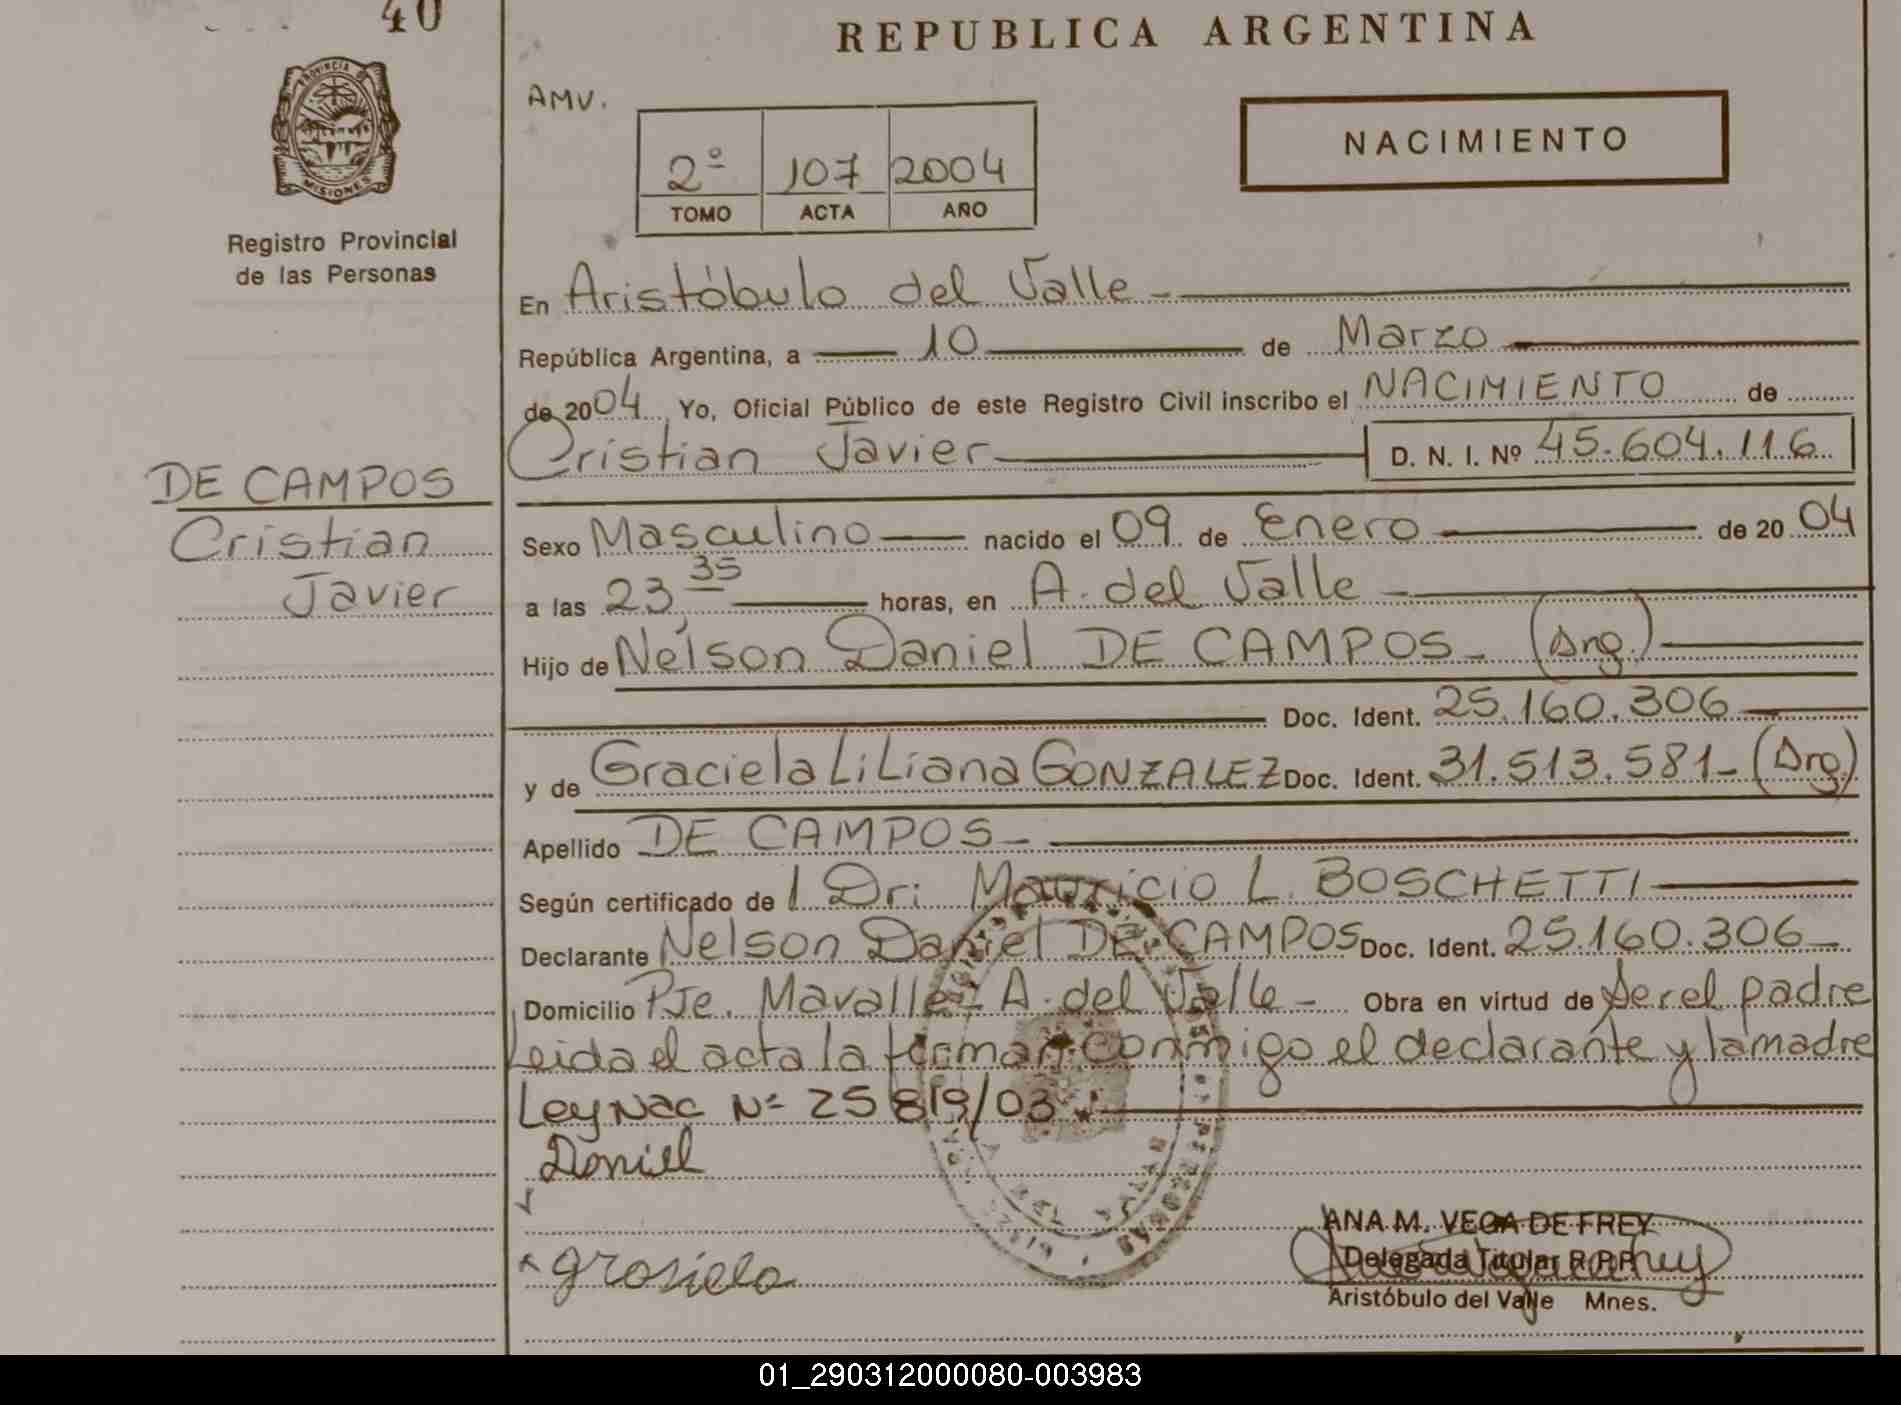 40
REPUBLICA ARGENTINA
PROVINCIA DE
MISIONES
Registro Provincial
de las Personas
AMV.
2º 107 2004
TOMO ACTA AÑO
NACIMIENTO
En Aristóbulo del Valle
República Argentina, a 10 de Marzo
de 2004 Yo, Oficial Público de este Registro Civil inscribo el NACIMIENTO de
Cristian Javier D. N. I. Nº 45.604.116
DE CAMPOS
Cristian
Javier
Sexo Masculino nacido el 09 de Enero de 2004
a las 23 35 horas, en A. del Valle
Hijo de Nelson Daniel DE CAMPOS - (Arg.)
Doc. Ident. 25.160.306
y de Graciela Liliana GONZALEZ Doc. Ident. 31.513.581 - (Arg.)
Apellido DE CAMPOS -
Según certificado de l Dr: Mauricio L. BOSCHETTI
Declarante Nelson Daniel DE CAMPOS Doc. Ident. 25.160.306
Domicilio Pje. Mavalle - A. del Valle - Obra en virtud de Ser el padre
Leida el acta la firman conmigo el declarante y la madre
Ley Nac Nº 25819/03
Daniel
graciela
ANA M. VEGA DE FREY
Delegada Titular R.P.P.
Aristóbulo del Valle Mnes.
01_290312000080-003983